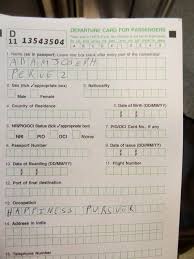 D
11 13543504
DEPARTURE CARD FOR PASSENGERS
ADAM JOSEPH
PERUEZ
2. Sex (tick ✓ appropriate box) 3. Nationality
Male Female
4. Country of Residence 5. Date of Birth (DD/MM/YY)
6. NRI/PIO/OCI Status (✓ appropriate box) 7. PIO/OCI Card No., if any
NRI PIO OCI None
8. Passport Number 9. Date of Issue (DD/MM/YY)
10. Date of Boarding (DD/MM/YY) 11. Flight Number
12. Port of final destination
13. Occupation
HAPPINESS PURSUER
14. Address in India
15. Telephone Number